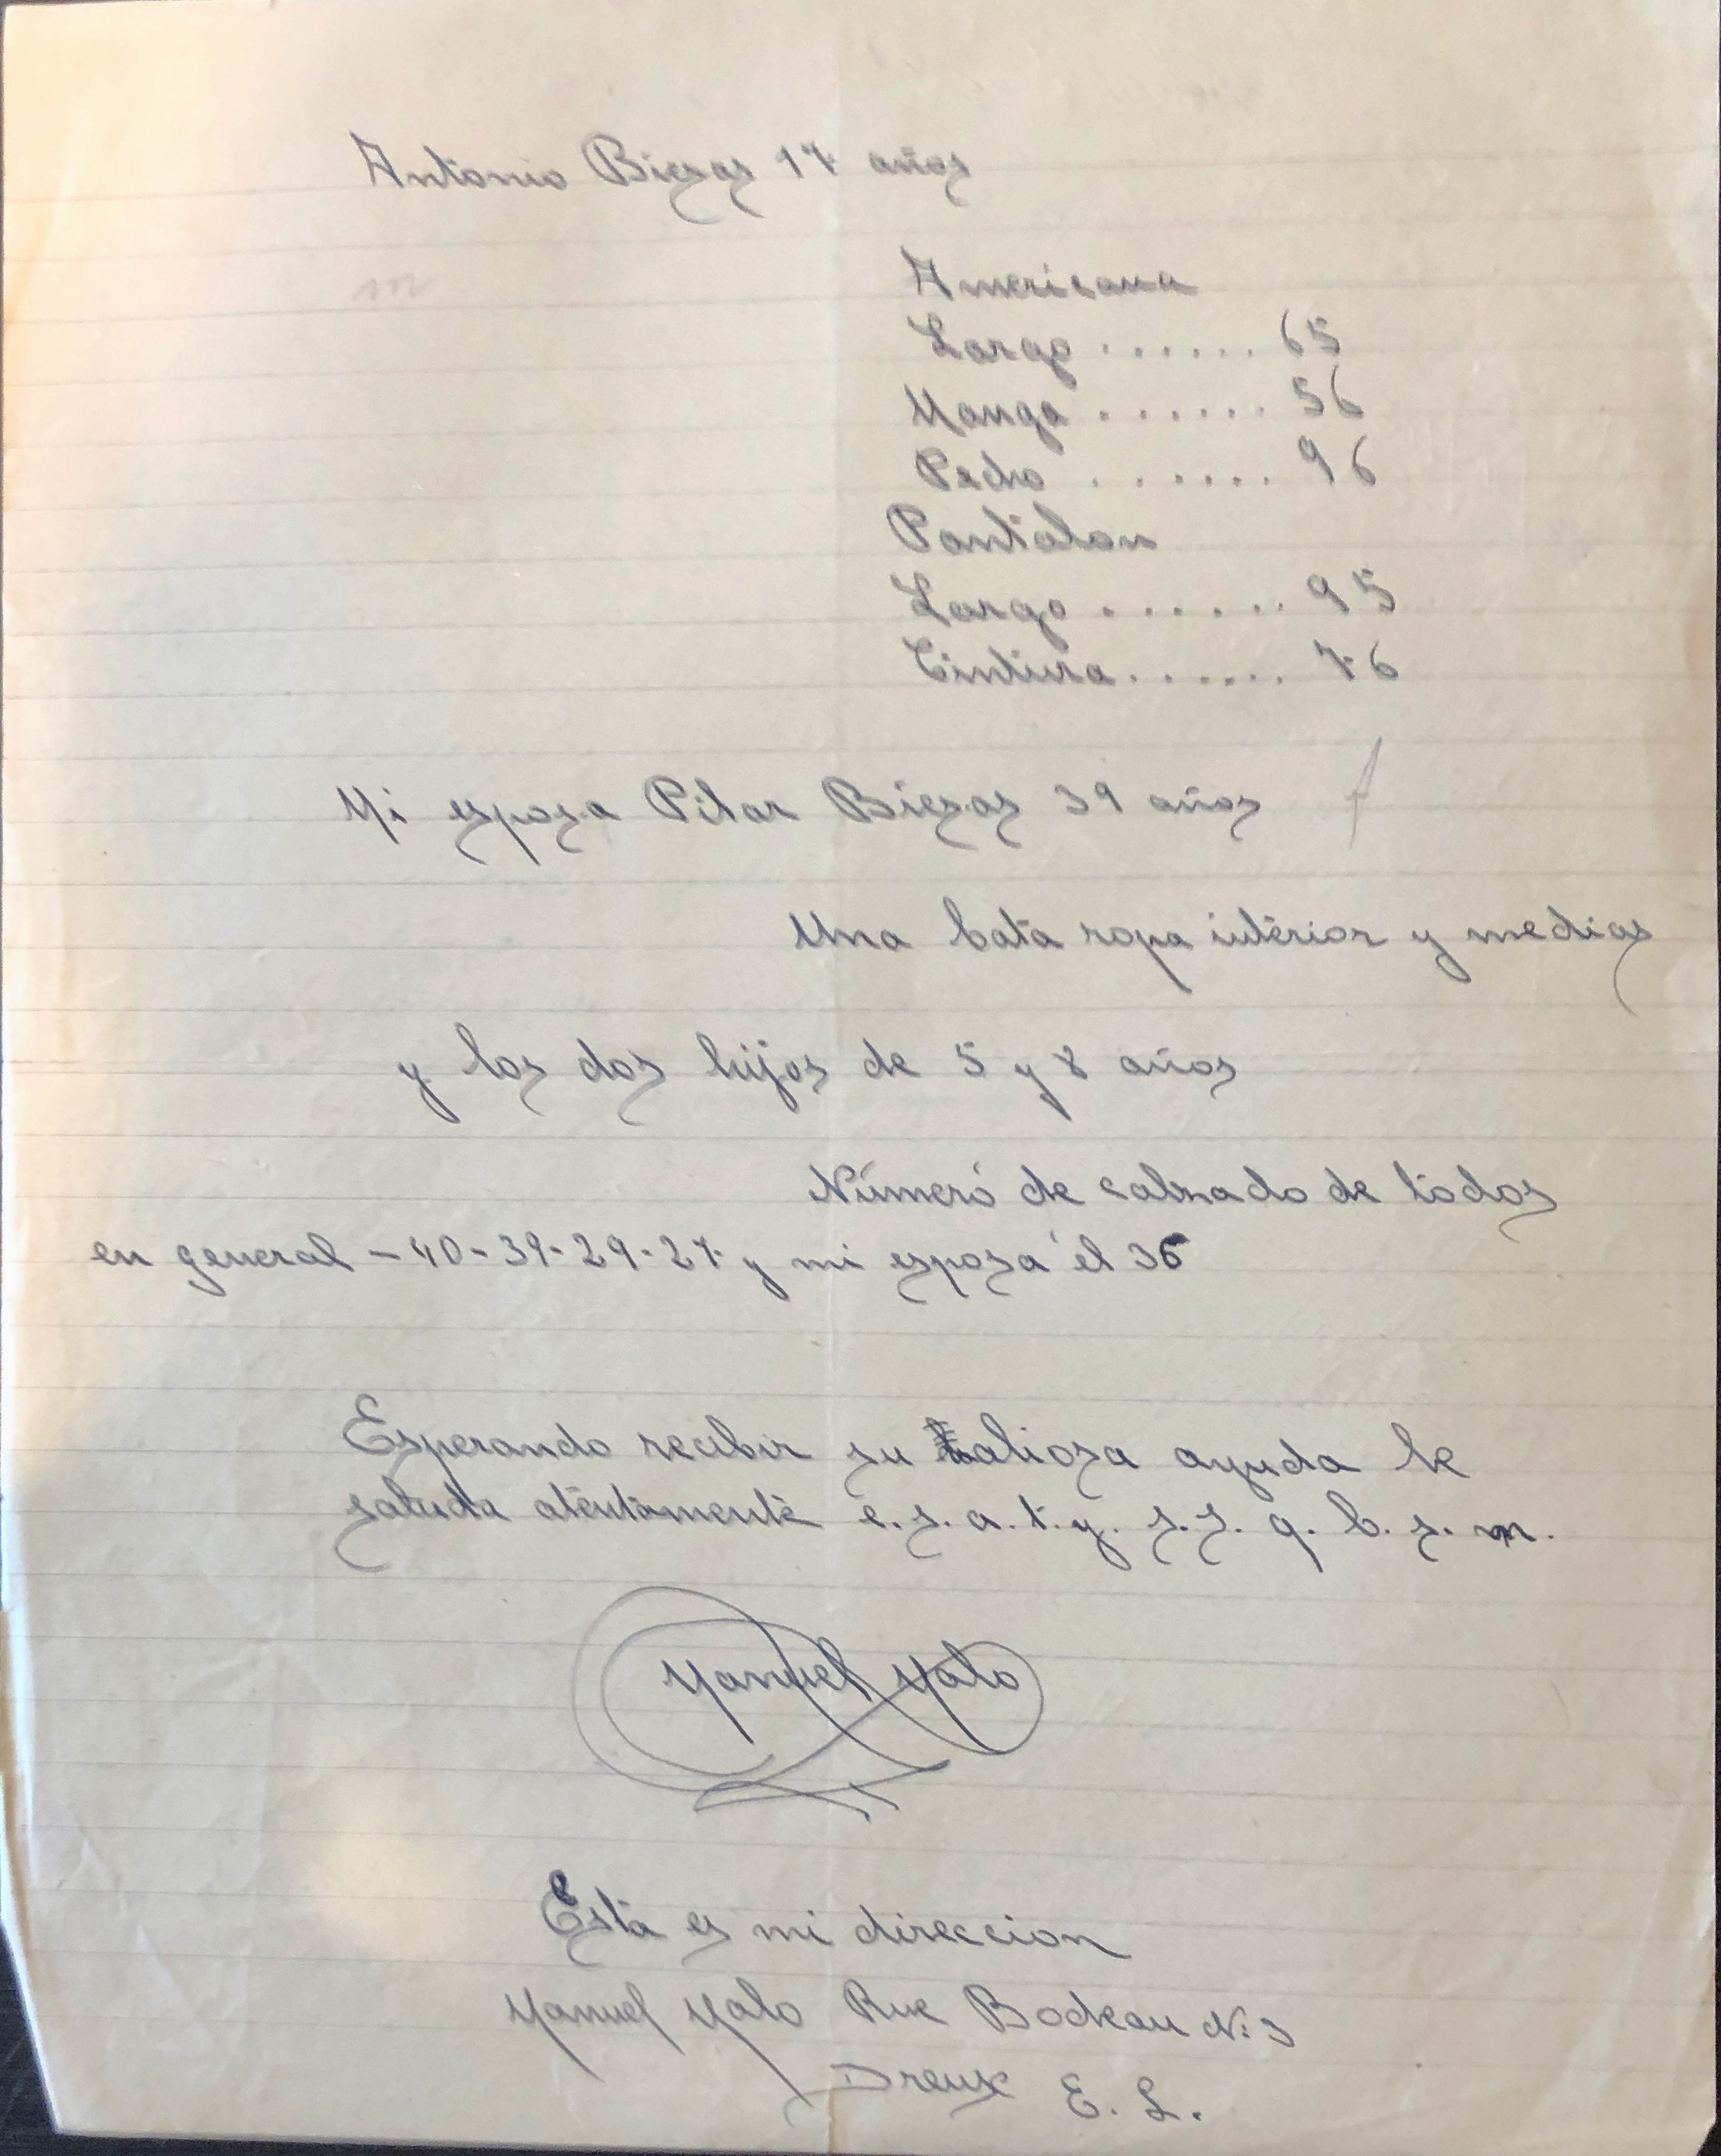 Antonio Biezas 17 años
m
Americana
Largo ...... 65
Manga ...... 56
Pecho ...... 96
Pantalon
Largo ...... 95
Cintura ...... 76
Mi esposa Pilar Biezas 39 años
Una bata ropa interior y medias
y los dos hijos de 5 y 8 años
Número de calzado de todos
en general - 40-39-29-27 y mi esposa el 36
Esperando recibir su valiosa ayuda le
saluda atentamente e. s. a. t. y. s. s. q. b. s. m.
Manuel Malo
Esta es mi direccion
Manuel Malo Rue Bodeau N: 3
Dreux E. L.